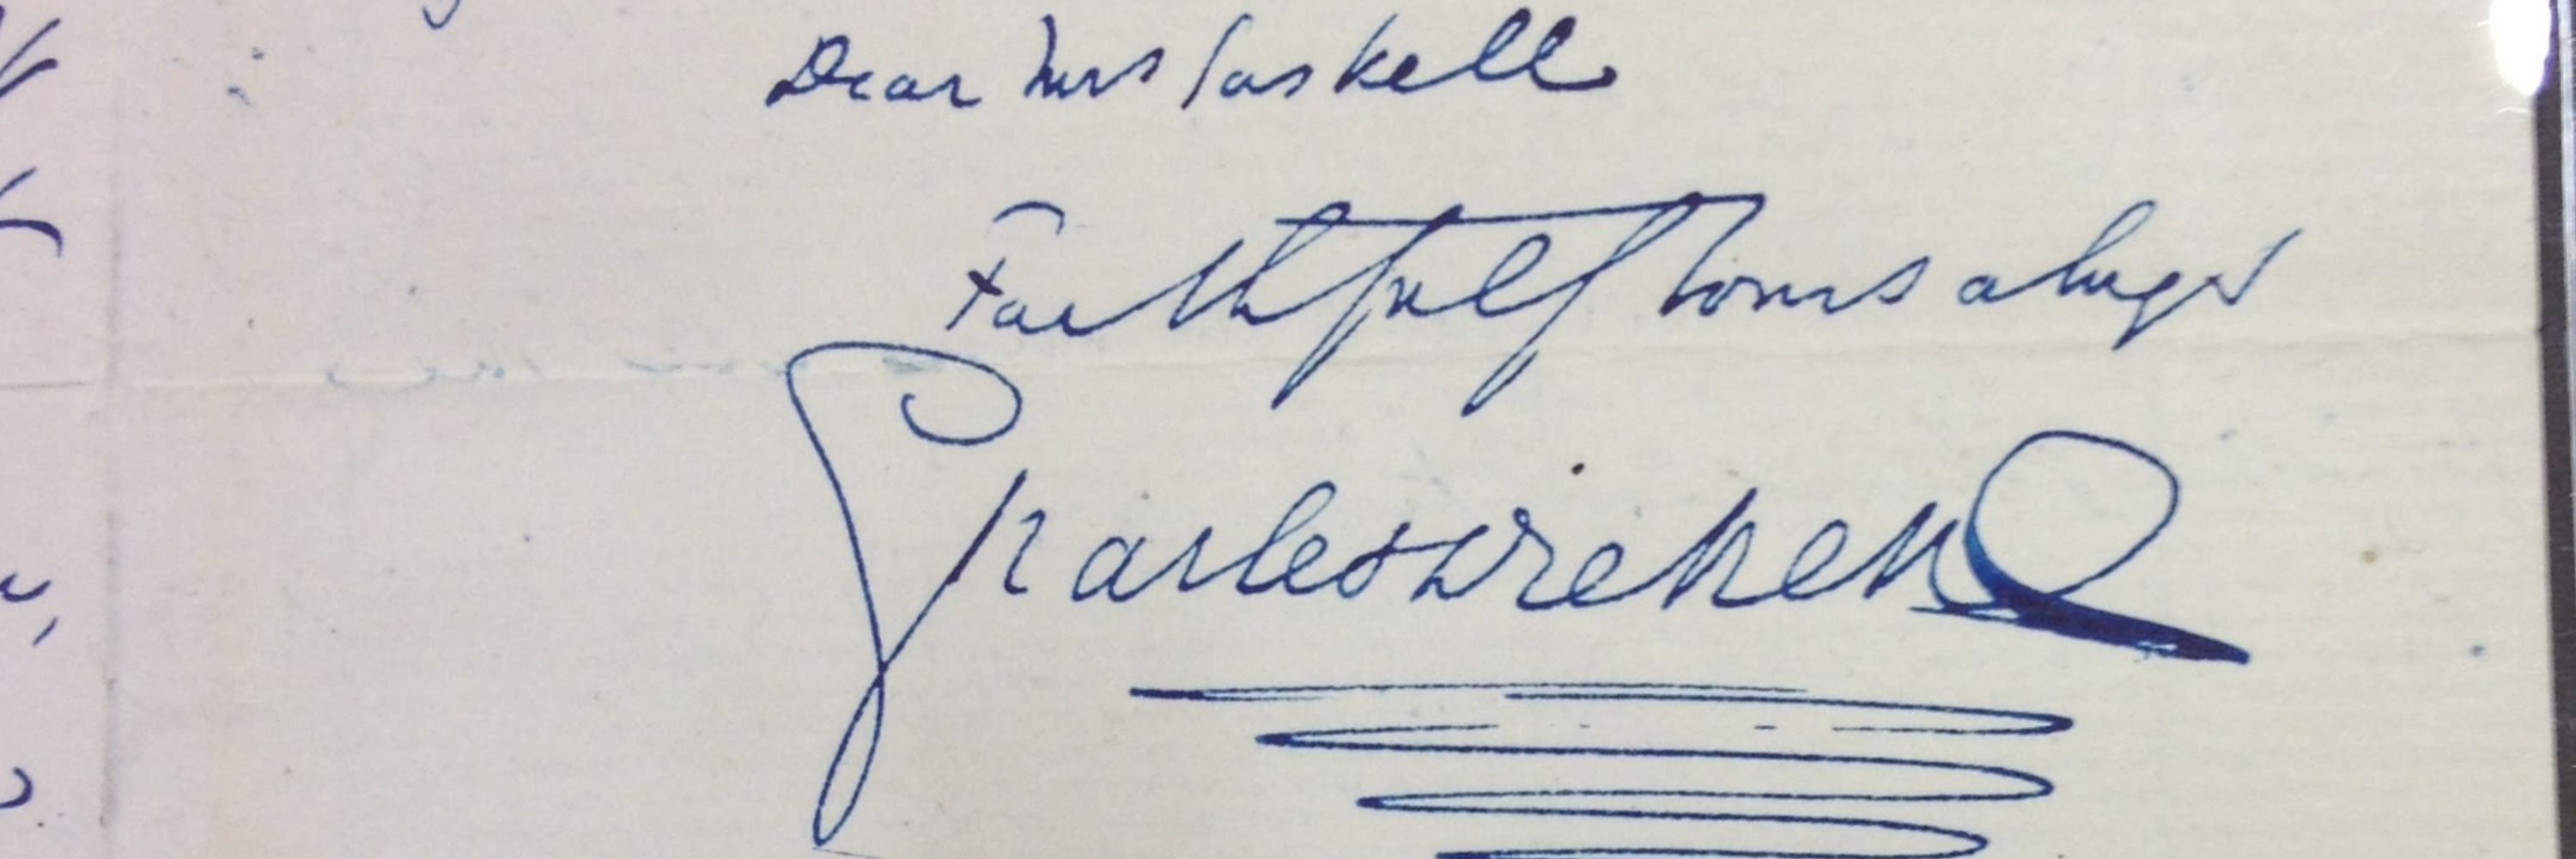 Dear Mrs Gaskell
Faithfully Yours always
Charles Dickens